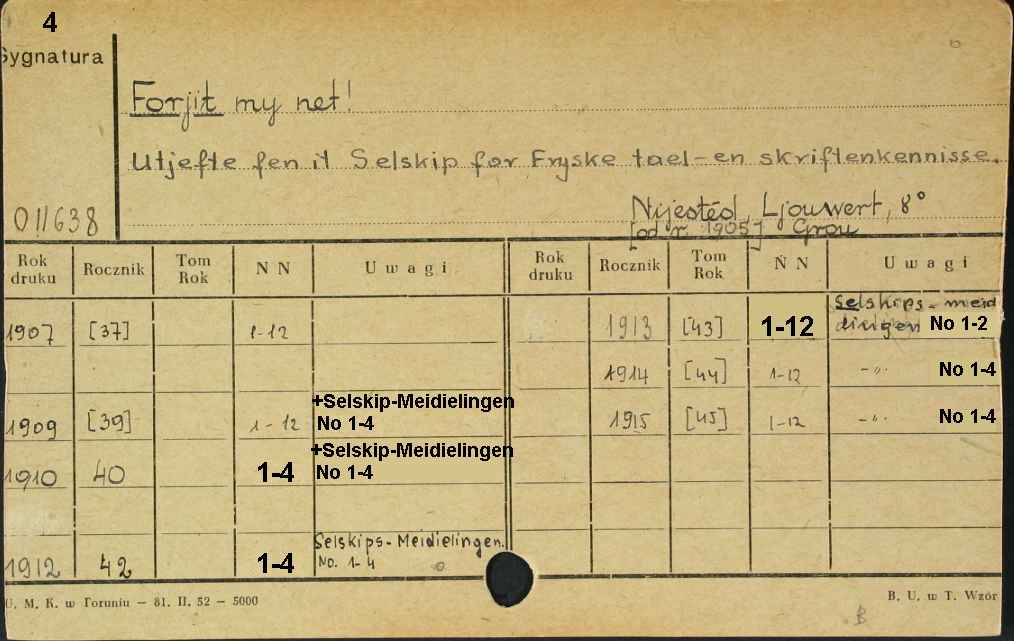 4
Sygnatura
Forjit my net!
Utjefte fen it Selskip for Fryske tael-en skriftenkennisse.
011638
Nijestéd, Ljouwert, 8°
[od r. 1905] Grou
Rok druku Rocznik Tom Rok N N Uwagi Rok druku Rocznik Tom Rok N N Uwagi
1907 [37] 1-12 1913 [43] 1-12 Selskips-meid dielingen No 1-2
1914 [44] 1-12 -"- No 1-4
1909 [39] 1-12 +Selskip-Meidielingen No 1-4 1915 [45] 1-12 -"- No 1-4
1910 40 1-4 +Selskip-Meidielingen No 1-4
1912 42 1-4 Selskips-Meidielingen. No. 1-4
U. M. K. w Toruniu — 81. II. 52 — 5000
B. U. w T. Wzór
B